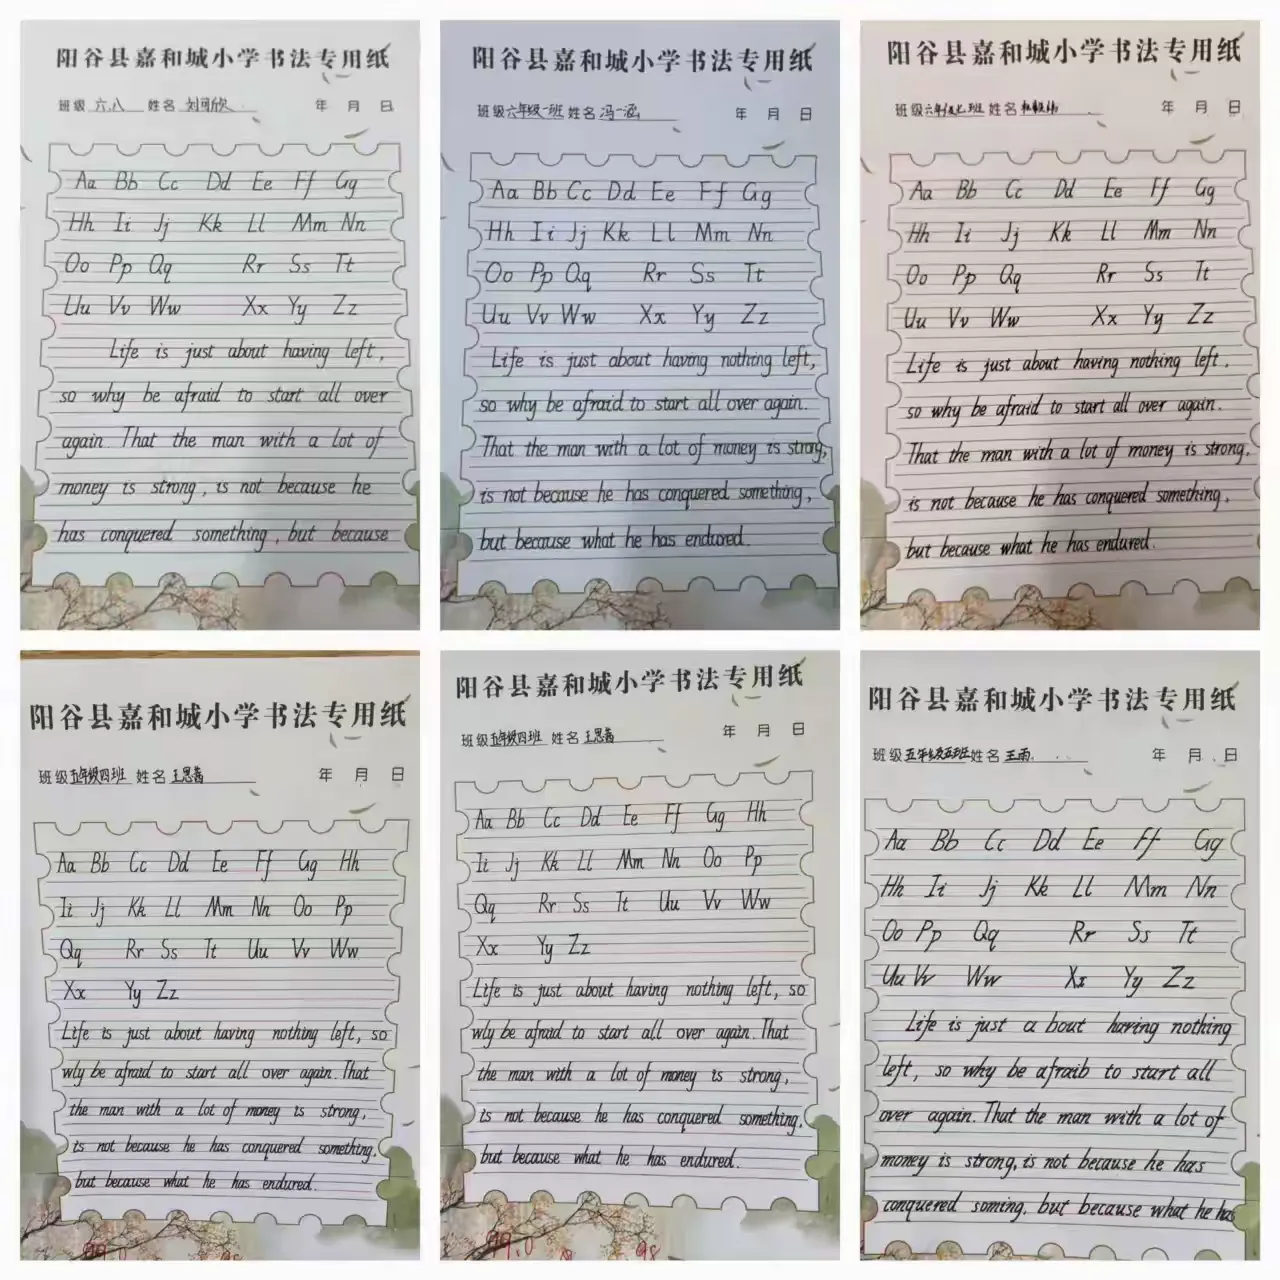 阳谷县嘉和城小学书法专用纸
班级 六.八 姓名 刘可欣 年 月 日
Aa Bb Cc Dd Ee Ff Gg
Hh Ii Jj Kk Ll Mm Nn
Oo Pp Qq Rr Ss Tt
Uu Vv Ww Xx Yy Zz
Life is just about having left,
so why be afraid to start all over
again. That the man with a lot of
money is strong, is not because he
has conquered something, but because
阳谷县嘉和城小学书法专用纸
班级 六年级一班 姓名 冯一涵 年 月 日
Aa Bb Cc Dd Ee Ff Gg
Hh Ii Jj Kk Ll Mm Nn
Oo Pp Qq Rr Ss Tt
Uu Vv Ww Xx Yy Zz
Life is just about having nothing left,
so why be afraid to start all over again.
That the man with a lot of money is strong,
is not because he has conquered something,
but because what he has endured.
阳谷县嘉和城小学书法专用纸
班级 六年级七班 姓名 年 月 日
Aa Bb Cc Dd Ee Ff Gg
Hh Ii Jj Kk Ll Mm Nn
Oo Pp Qq Rr Ss Tt
Uu Vv Ww Xx Yy Zz
Life is just about having nothing left,
so why be afraid to start all over again.
That the man with a lot of money is strong,
is not because he has conquered something,
but because what he has endured.
阳谷县嘉和城小学书法专用纸
班级 五年级四班 姓名 王思 年 月 日
Aa Bb Cc Dd Ee Ff Gg Hh
Ii Jj Kk Ll Mm Nn Oo Pp
Qq Rr Ss Tt Uu Vv Ww
Xx Yy Zz
Life is just about having nothing left, so
wly be afraid to start all over again. That
the man with a lot of money is strong,
is not because he has conquered something,
but because what he has endured.
阳谷县嘉和城小学书法专用纸
班级 五年级四班 姓名 王思 年 月 日
Aa Bb Cc Dd Ee Ff Gg Hh
Ii Jj Kk Ll Mm Nn Oo Pp
Qq Rr Ss Tt Uu Vv Ww
Xx Yy Zz
Life is just about having nothing left, so
wly be afraid to start all over again. That
the man with a lot of money is strong,
is not because he has conquered something,
but because what he has endured.
98
阳谷县嘉和城小学书法专用纸
班级 五年级五班 姓名 王雨 年 月 日
Aa Bb Cc Dd Ee Ff Gg
Hh Ii Jj Kk Ll Mm Nn
Oo Pp Qq Rr Ss Tt
Uu Vv Ww Xx Yy Zz
Life is just a bout having nothing
left, so why be afraib to start all
over again. That the man with a lot of
money is strong, is not because he has
conquered soming, but because what he has